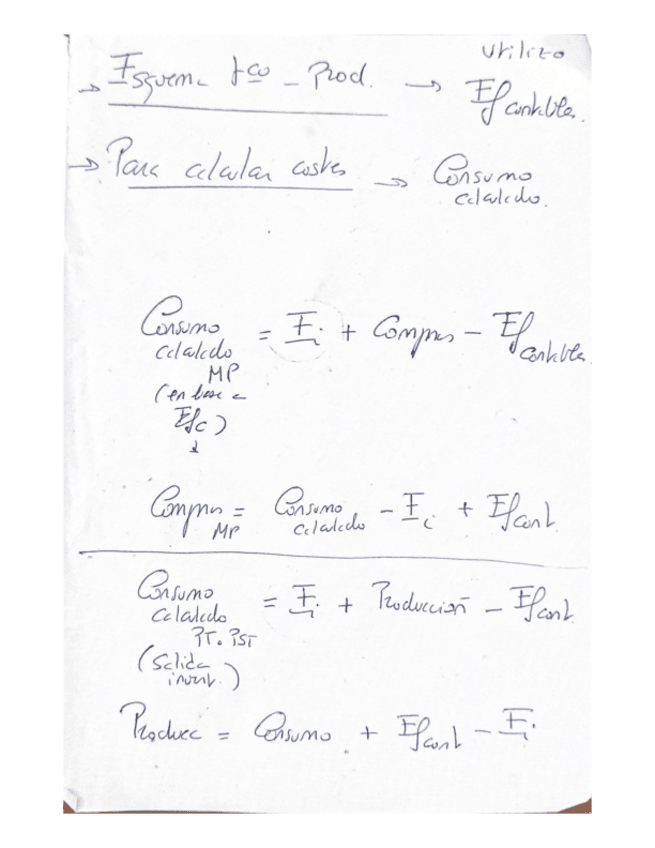 utilizo
→ Esquema tco - Prod. → Ef contable.
→ Para calcular costes → Consumo calculado.
Consumo calculado MP (en base a Efc) = Ei + Compras - Ef contable
Compras MP = Consumo calculado - Ei + Ef cont.
Consumo calculado PT. PST (Salida invent.) = Ei + Producción - Ef cont.
Produc = Consumo + Ef cont - Ei